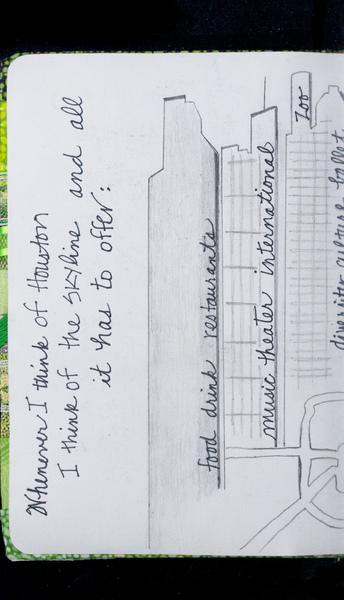 Whenever I think of Houston
I think of the skyline and all
it has to offer:
food drink restaurants
music theater international
Zoo
diversity culture ballet